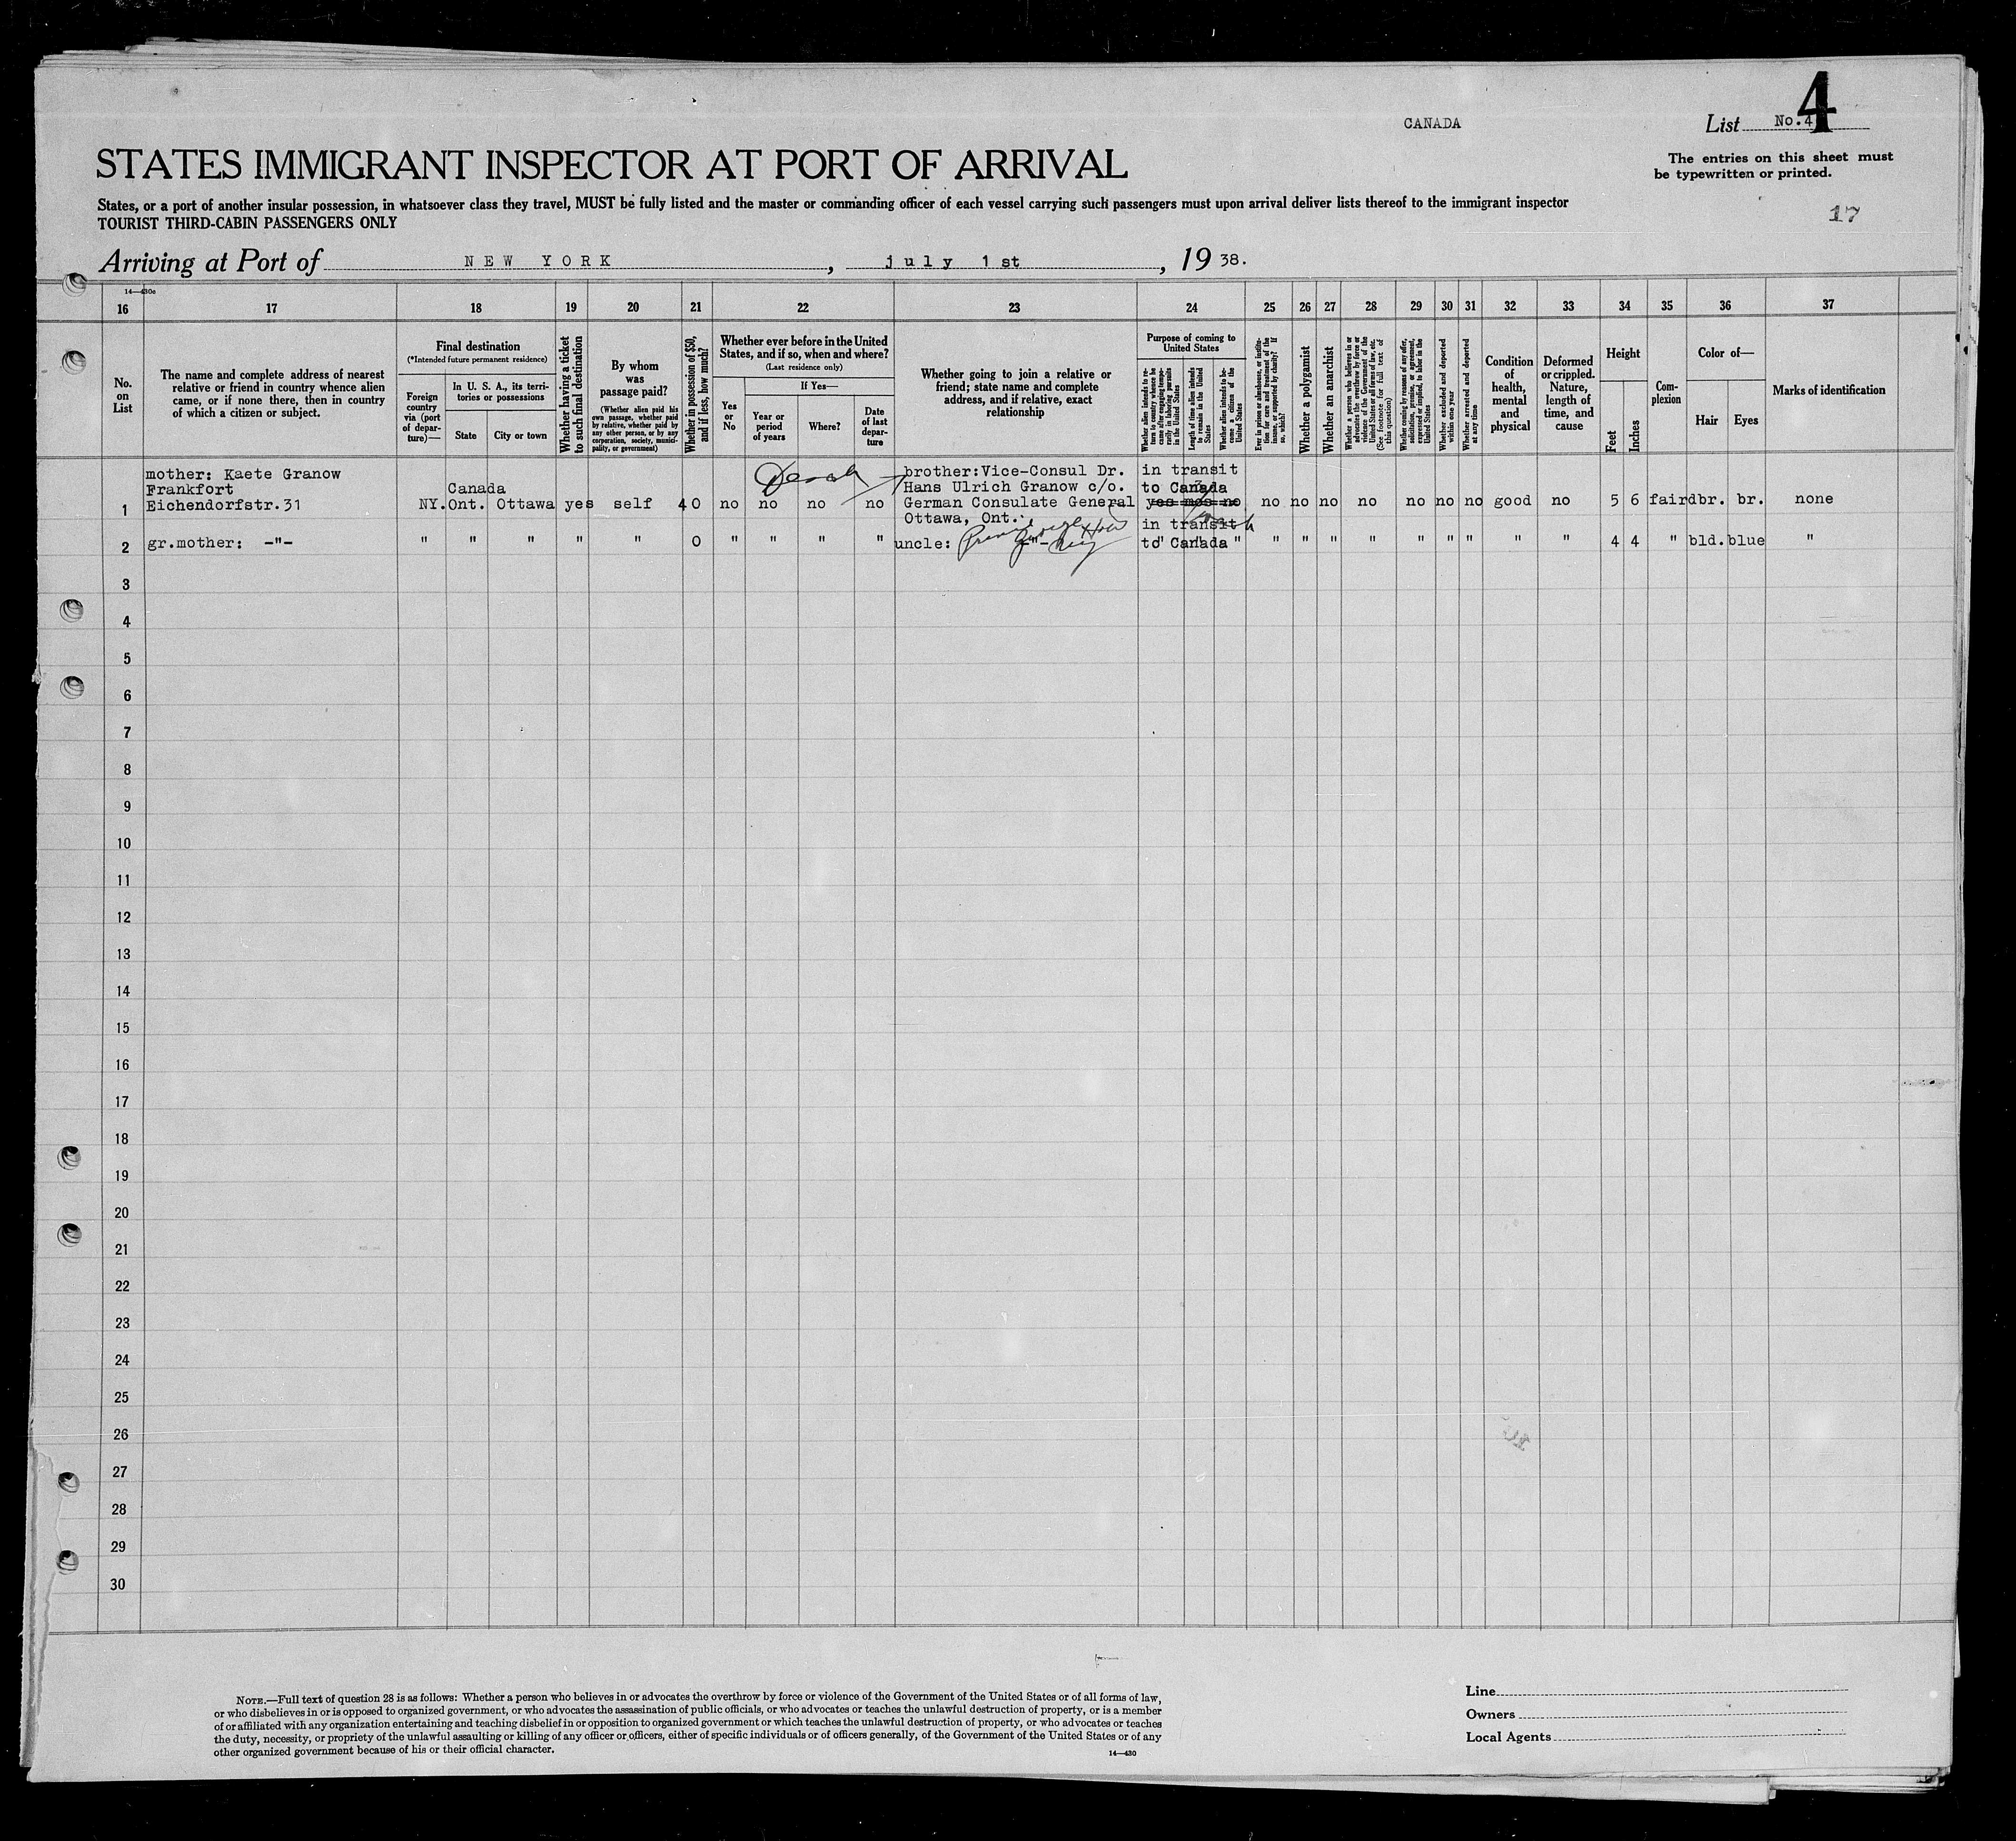 CANADA
List No. 4
4
The entries on this sheet must
be typewritten or printed.
17
STATES IMMIGRANT INSPECTOR AT PORT OF ARRIVAL
States, or a port of another insular possession, in whatsoever class they travel, MUST be fully listed and the master or commanding officer of each vessel carrying such passengers must upon arrival deliver lists thereof to the immigrant inspector
TOURIST THIRD-CABIN PASSENGERS ONLY
Arriving at Port of NEW YORK, july 1st, 1938.
14—430c
16 17 18 19 20 21 22 23 24 25 26 27 28 29 30 31 32 33 34 35 36 37
No.
on
List
The name and complete address of nearest
relative or friend in country whence alien
came, or if none there, then in country
of which a citizen or subject.
Final destination
(*Intended future permanent residence)
Foreign
country
via (port
of depar-
ture)—
In U. S. A., its terri-
tories or possessions
State
City or town
Whether having a ticket
to such final destination
By whom
was
passage paid?
(Whether alien paid his
own passage, whether paid
by relative, whether paid by
any other person, or by any
corporation, society, munici-
pality, or government)
Whether in possession of $50,
and if less, how much?
Whether ever before in the United
States, and if so, when and where?
(Last residence only)
Yes
or
No
If Yes—
Year or
period
of years
Where?
Date
of last
depar-
ture
Whether going to join a relative or
friend; state name and complete
address, and if relative, exact
relationship
Purpose of coming to
United States
Whether alien intends to re-
turn to country whence he
came after engaging tempo-
rarily in laboring pursuits
in the United States
Length of time alien intends
to remain in the United
States
Whether alien intends to be-
come a citizen of the
United States
Ever in prison or almshouse, or institu-
tion for care and treatment of the
insane, or supported by charity? If
so, which?
Whether a polygamist
Whether an anarchist
Whether a person who believes in or
advocates the overthrow by force or
violence of the Government of the
United States or all forms of law, etc.
(See footnote for full text of
this question)
Whether coming by reason of any offer,
solicitation, promise, or agreement,
expressed or implied, to labor in the
United States
Whether excluded and deported
within one year
Whether arrested and deported
at any time
Condition
of
health,
mental
and
physical
Deformed
or crippled.
Nature,
length of
time, and
cause
Height
Feet
Inches
Com-
plexion
Color of—
Hair
Eyes
Marks of identification
mother: Kaete Granow brother:Vice-Consul Dr. in transit
Frankfort Canada Hans Ulrich Granow c/o. to Canada
1 Eichendorfstr.31 NY. Ont. Ottawa yes self 40 no no no no German Consulate General yes mos no no no no no no no no good no 5 6 fair dbr. br. none
Ottawa, Ont. in transit
2 gr.mother: -"- " " " " " 0 " " " " uncle: -"- to Canada " " " " " " " " " " " " 4 4 " bld. blue "
3
4
5
6
7
8
9
10
11
12
13
14
15
16
17
18
19
20
21
22
23
24
25
26
27
28
29
30
NOTE.—Full text of question 28 is as follows: Whether a person who believes in or advocates the overthrow by force or violence of the Government of the United States or of all forms of law,
or who disbelieves in or is opposed to organized government, or who advocates the assassination of public officials, or who advocates or teaches the unlawful destruction of property, or is a member
of or affiliated with any organization entertaining and teaching disbelief in or opposition to organized government or which teaches the unlawful destruction of property, or who advocates or teaches
the duty, necessity, or propriety of the unlawful assaulting or killing of any officer or officers, either of specific individuals or of officers generally, of the Government of the United States or of any
other organized government because of his or their official character.
14—430
Line
Owners
Local Agents